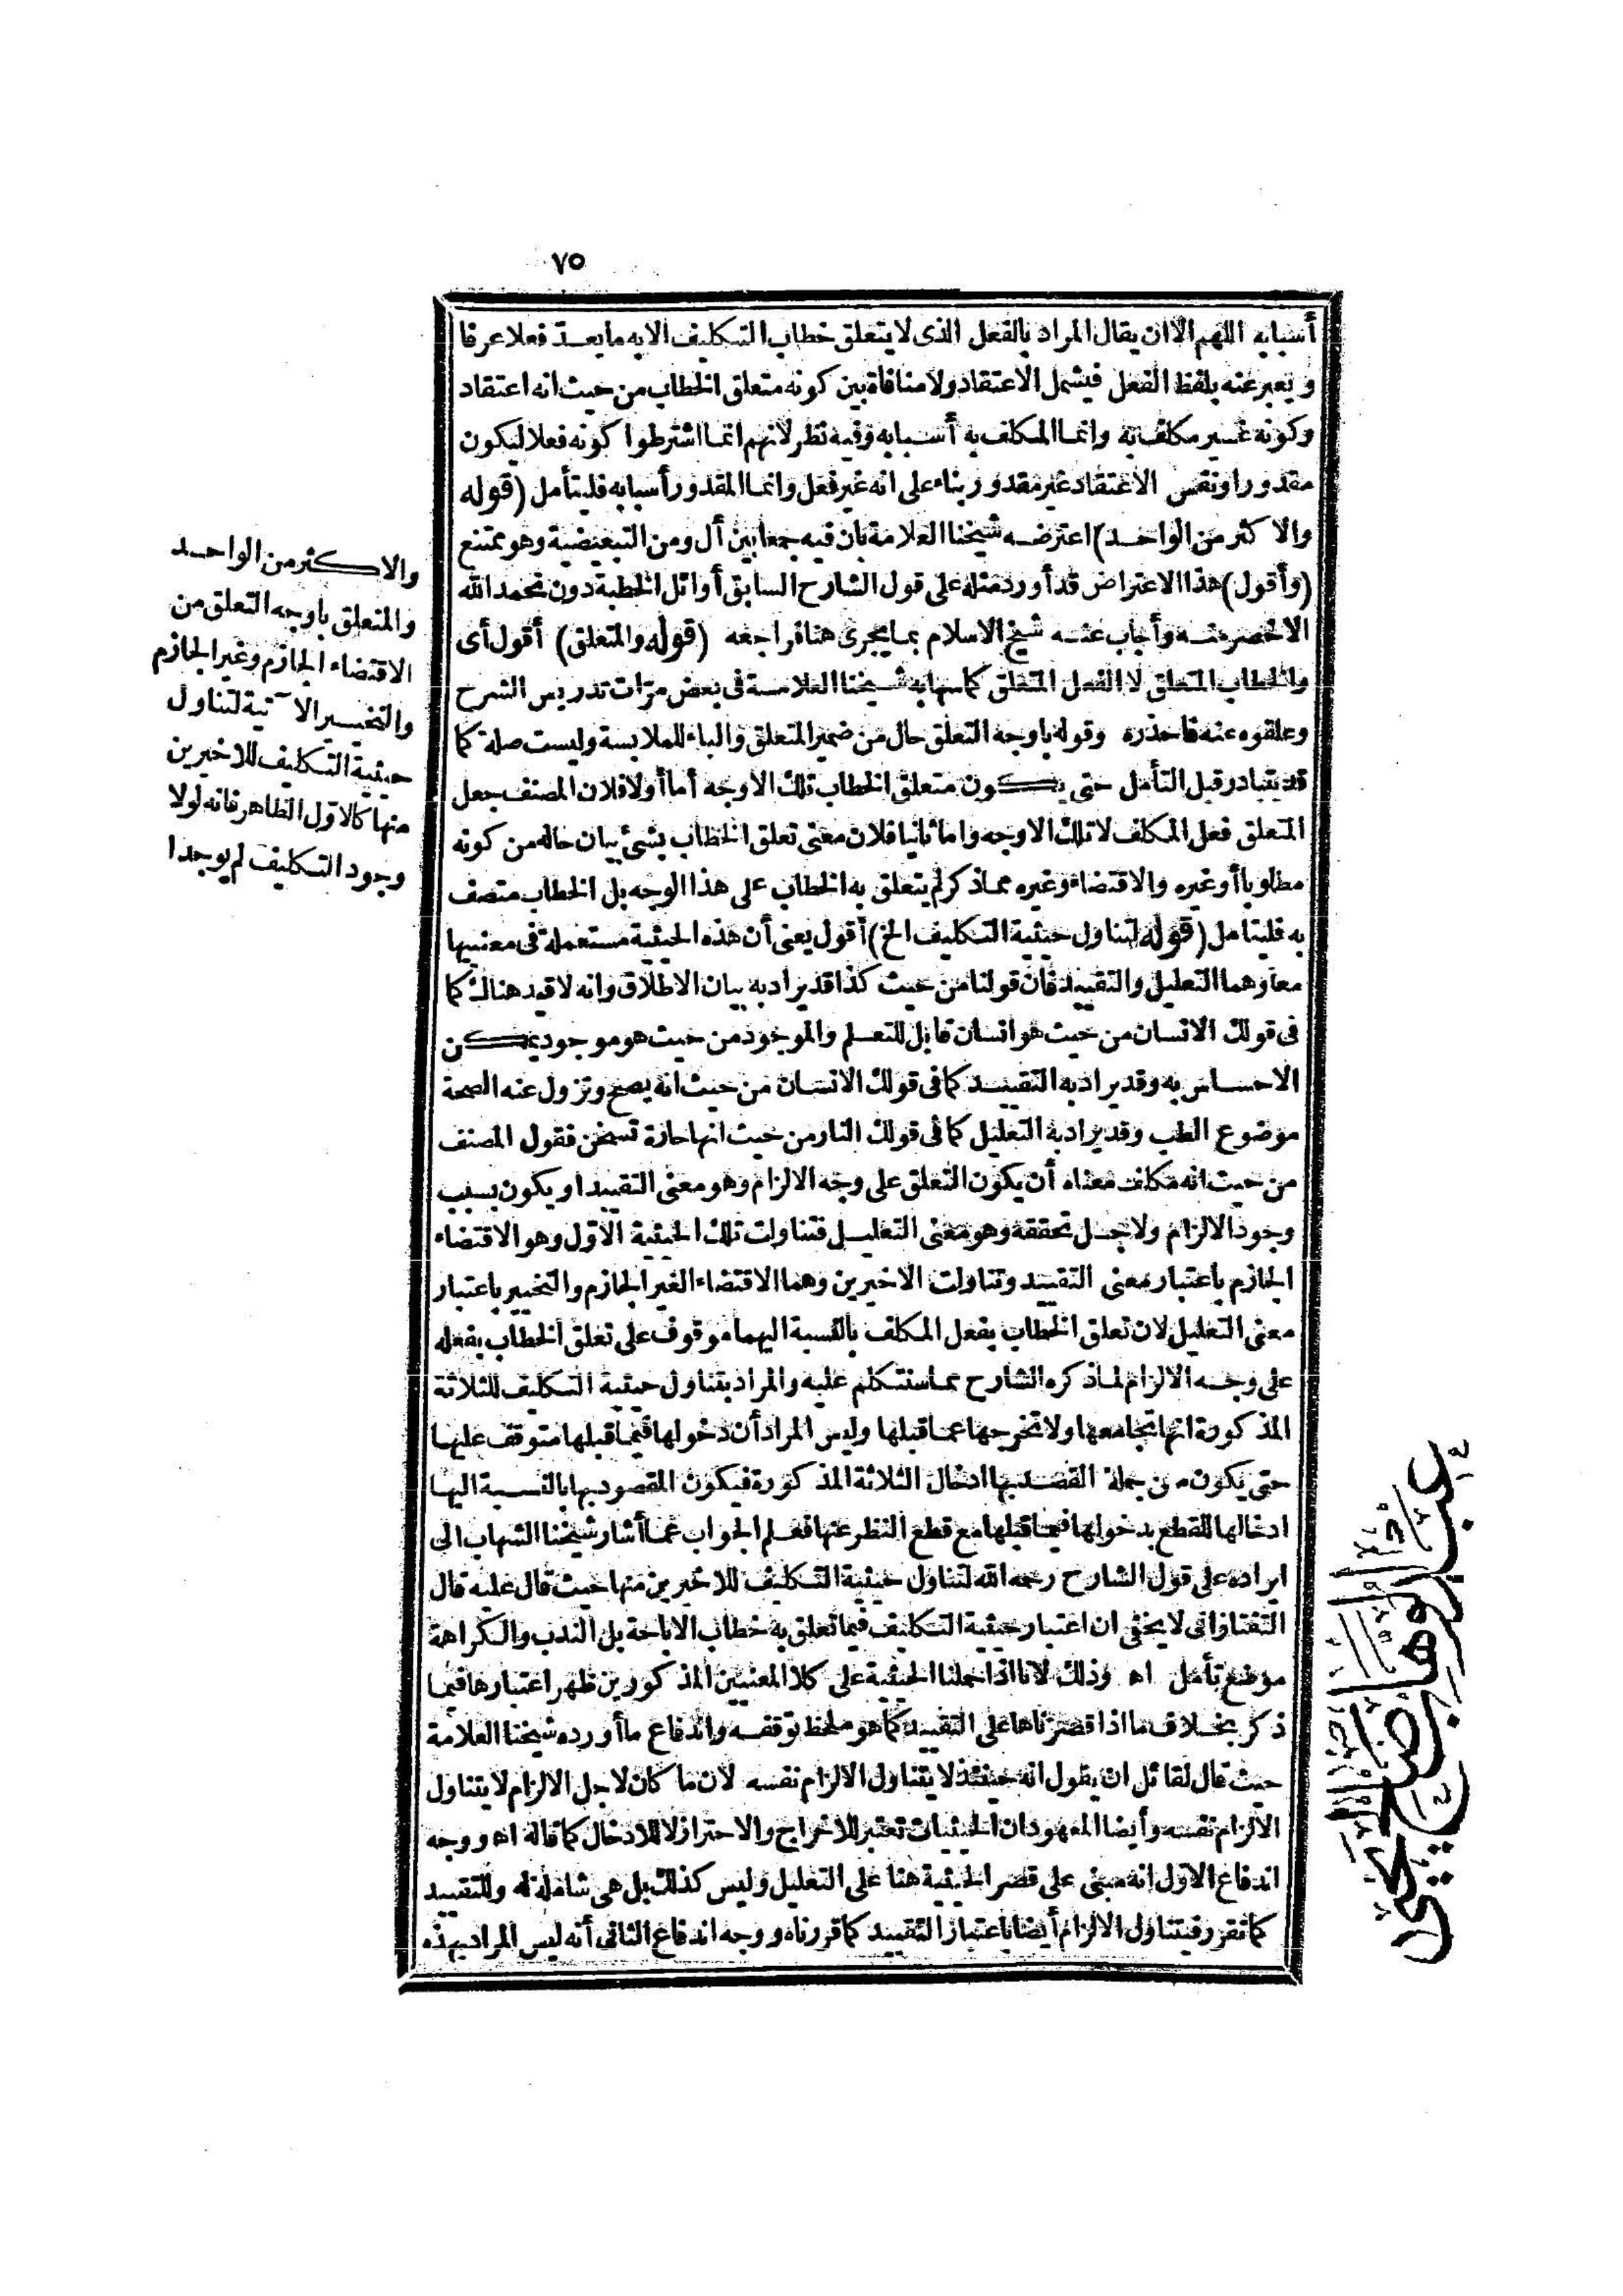 ٧٥
أسبابه اللهم الا ان يقال المراد بالفعل الذى لا يتعلق خطاب التكليف الا به ما يعدّ فعلا عرفا
ويعبر عنه بلفظ الفعل فيشمل الاعتقاد ولا منافاة بين كونه متعلق الخطاب من حيث انه اعتقاد
وكونه غير مكلف به وانما المكلف به أسبابه وفيه نظر لانهم انما اشترطوا كونه فعلا ليكون
مقدورا ونفس الاعتقاد غير مقدور بناء على انه غير فعل وانما المقدور أسبابه فليتأمل (قوله
والاكثر من الواحد) اعترضه شيخنا العلامة بان فيه جمعا بين أل ومن التبعيضية وهو ممتنع
(وأقول) هذا الاعتراض قد أورد مثله على قول الشارح السابق أوائل الخطبة دون نحمد الله
الاخصر منه وأجاب عنه شيخ الاسلام بما يجرى هنا فراجعه (قوله والمتعلق) أقول أى
والخطاب المتعلق لا الفعل المتعلق كما سها به شيخنا العلامة فى بعض مرّات تدريس الشرح
وعلقوه عنه فاحذره وقوله باوجه التعلق حال من ضمير المتعلق والباء للملابسة وليست صلة كما
قد يتبادر قبل التأمل حتى يكون متعلق الخطاب تلك الاوجه أما أولا فلان المصنف جعل
المتعلق فعل المكلف لا تلك الاوجه واما ثانيا فلان معنى تعلق الخطاب بشئ بيان حاله من كونه
مطلوبا أو غيره والاقتضاء وغيره مما ذكر لم يتعلق به الخطاب على هذا الوجه بل الخطاب متصف
به فليتامل (قوله لتناول حيثية التكليف الخ) أقول يعنى أن هذه الحيثية مستعملة فى معنييها
معا وهما التعليل والتقييد فان قولنا من حيث كذا قد يراد به بيان الاطلاق وانه لا قيد هناك كما
فى قولك الانسان من حيث هو انسان قابل للتعلم والموجود من حيث هو موجود يمكن
الاحساس به وقد يراد به التقييد كما فى قولك الانسان من حيث انه يصح وتزول عنه الصحة
موضوع الطب وقد يراد به التعليل كما فى قولك النار من حيث انها حارة تسخن فقول المصنف
من حيث انه مكلف معناه أن يكون التعلق على وجه الالزام وهو معنى التقييد او يكون بسبب
وجود الالزام ولاجل تحققه وهو معنى التعليل فتناولت تلك الحيثية الاوّل وهو الاقتضاء
الجازم باعتبار معنى التقييد وتناولت الاخيرين وهما الاقتضاء الغير الجازم والتخيير باعتبار
معنى التعليل لان تعلق الخطاب بفعل المكلف بالنسبة اليهما موقوف على تعلق الخطاب بفعله
على وجه الالزام لما ذكره الشارح مما سنتكلم عليه والمراد بتناول حيثية التكليف للثلاثة
المذكورة انها تجامعها ولا تخرجها عما قبلها وليس المراد أن دخولها فيما قبلها متوقف عليها
حتى يكون من جملة القصد بها ادخال الثلاثة المذكورة فيكون المقصود بها بالنسبة اليها
ادخالها للقطع بدخولها فيما قبلها مع قطع النظر عنها فعلم الجواب عما أشار شيخنا الشهاب الى
ايراده على قول الشارح رحمه الله لتناول حيثية التكليف للاخيرين منها حيث قال عليه قال
التفتازانى لا يخفى ان اعتبار حيثية التكليف فيما تعلق به خطاب الاباحة بل الندب والكراهة
موضع تأمل اه وذلك لانا اذا حملنا الحيثية على كلا المعنيين المذكورين ظهر اعتبارها فيما
ذكر بخلاف ما اذا قصرناها على التقييد كما هو ملحظ توقفه واندفاع ما أورده شيخنا العلامة
حيث قال لقائل ان يقول انه حينئذ لا يتناول الالزام نفسه لان ما كان لاجل الالزام لا يتناول
الالزام نفسه وأيضا المعهود ان الحيثيات تعتبر للاخراج والاحتراز لا للادخال كما قاله اه ووجه
اندفاع الاوّل انه مبنى على قصر الحيثية هنا على التعليل وليس كذلك بل هى شاملة له وللتقييد
كما تقرر فيتناول الالزام أيضا باعتبار التقييد كما قررناه ووجه اندفاع الثانى أنه ليس المراد بهذه
والاكثر من الواحد
والمتعلق باوجه التعلق من
الاقتضاء الجازم وغير الجازم
والتخيير الآتية لتناول
حيثية التكليف للاخيرين
منها كالاوّل الظاهر فانه لولا
وجود التكليف لم يوجدا